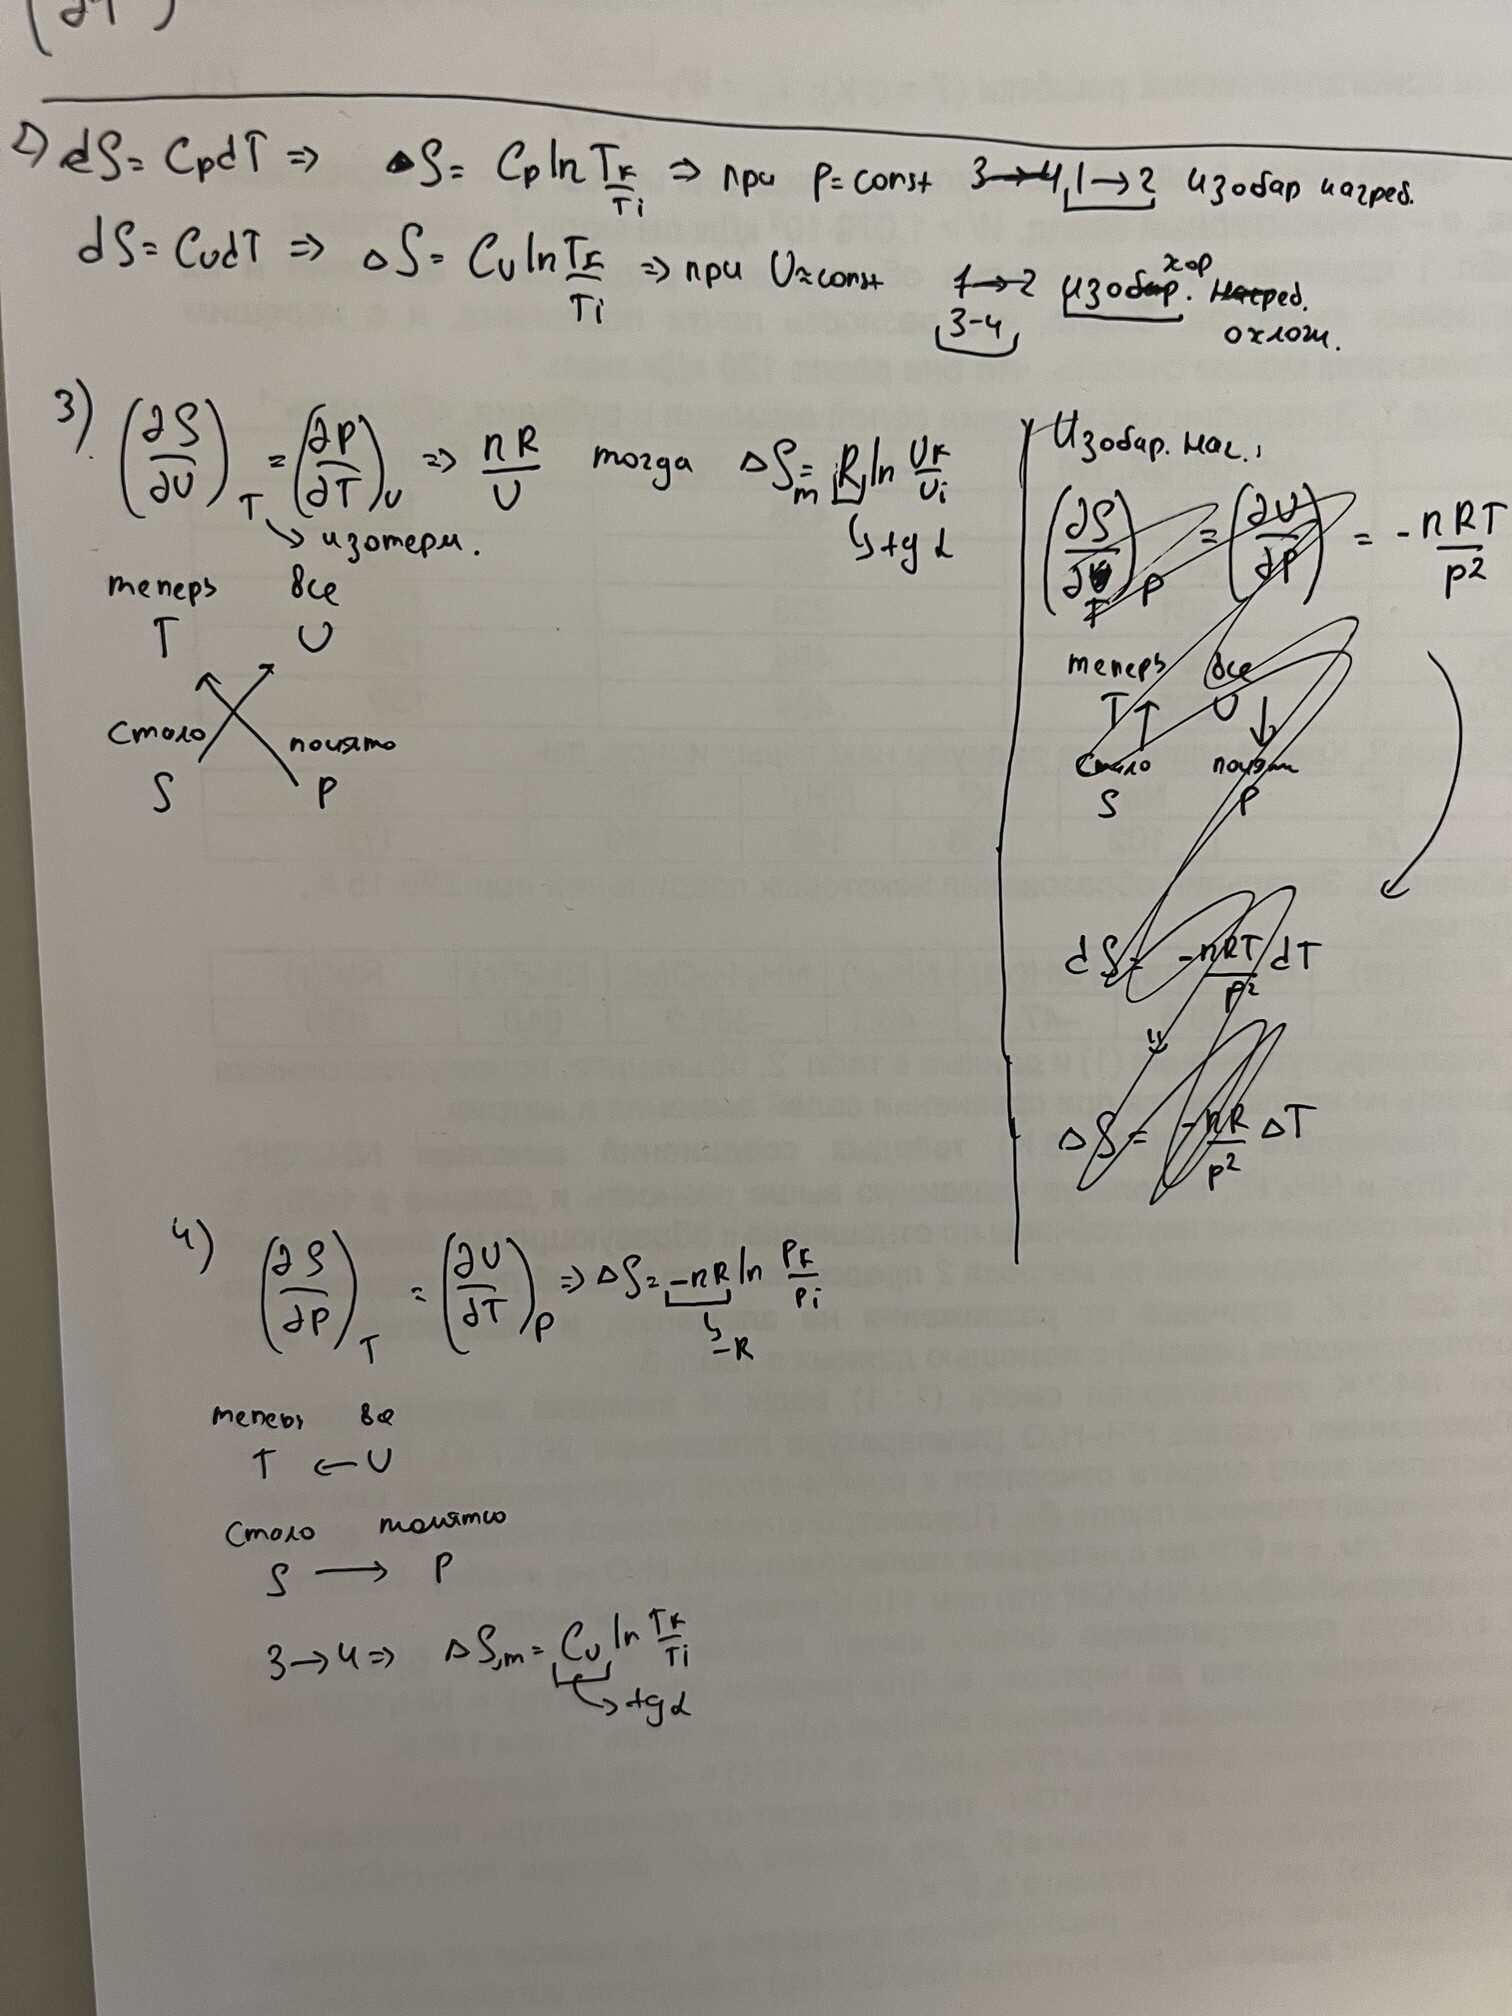 2) dS = CpdT ⇒ ΔS = Cp ln Tк/Ti ⇒ при p = const 3→4, 1→2 изобар нагрев.
dS = CvdT ⇒ ΔS = Cv ln Tк/Ti ⇒ при V = const 1→2 изобар. хор нагрев.
3-4 охлож.
3) (∂S/∂V)T = (∂P/∂T)V ⇒ nR/V тогда ΔSm = R ln Vк/Vi
↳ изотерм. ↳ tg α
теперь все
T V
стало понято
S P
Изобар. наг.,
(∂S/∂T)P = (∂V/∂P) = - nRT/p²
теперь все
T↑ V↓
стало понятн
S P
dS = -nRT/p² dT
ΔS = -nR/p² ΔT
4) (∂S/∂P)T = (∂V/∂T)P ⇒ ΔS = -nR ln Pк/Pi
↳ -R
теперь все
T ← V
Стало понятно
S → P
3→4 ⇒ ΔS,m = Cv ln Tк/Ti
↳ tg α